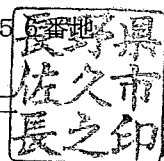 番地
長野県
佐久市
長之印